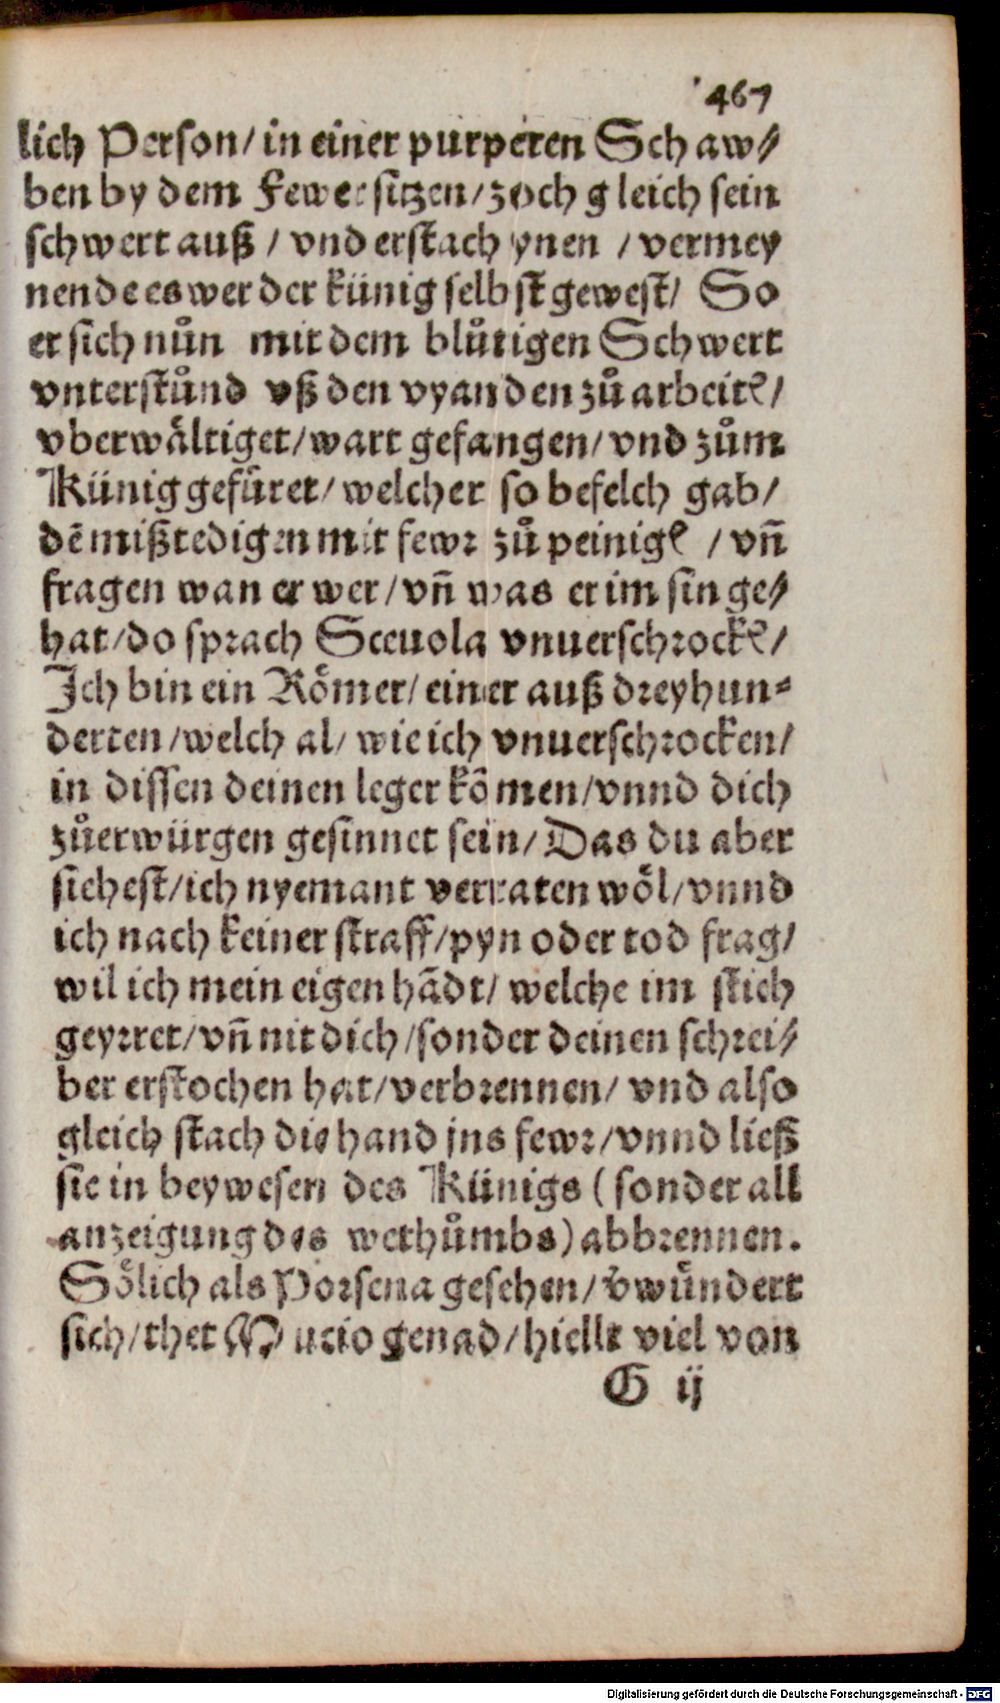 467
lich Person/ in einer purperen Schaw⸗
ben by dem Fewer sitzen/ zoch gleich sein
schwert auß / vnd erstach ynen / vermey
nende es wer der künig selbst gewest/ So
er sich nůn mit dem blůtigen Schwert
vnterstůnd vß den vyanden zů arbeitẽ/
vberwåltiget/ wart gefangen/ vnd zům
Künig gefůret/ welcher so befelch gab/
dẽ mißtedigen mit fewr zů peinigẽ / vñ
fragen wan er wer/ vñ was er im sin ge⸗
hat/ do sprach Sceuola vnuerschrockẽ/
Ich bin ein Rőmer/ einer auß dreyhun⸗
derten/ welch al/ wie ich vnuerschrocken/
in dissen deinen leger kõmen/ vnnd dich
zůerwürgen gesinnet sein/ Das du aber
siehest/ ich nyemant verraten wől/ vnnd
ich nach keiner straff/ pyn oder tod frag/
wil ich mein eigen hãdt/ welche im stich
geyrret/ vñ nit dich/ sonder deinen schrei⸗
ber erstochen hat/ verbrennen/ vnd also
gleich stach die hand ins fewr/ vnnd ließ
sie in beywesen des Künigs (sonder all
anzeigung des wethůmbs) abbrennen.
Sőlich als Porsena gesehen/ v̾wůndert
sich/ thet Mutio genad/ hiellt viel von
G ij
Digitalisierung gefördert durch die Deutsche Forschungsgemeinschaft - DFG